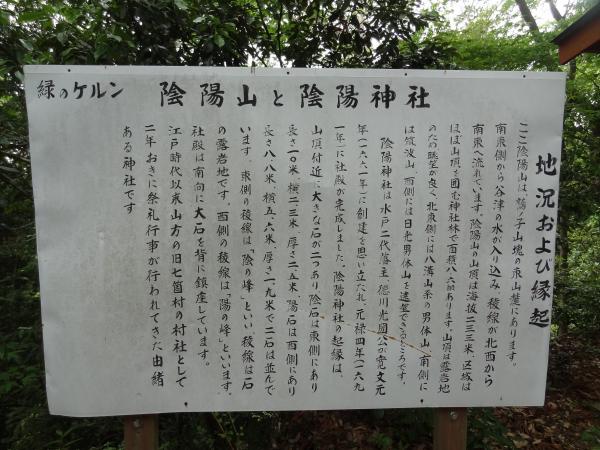 緑のケルン
陰陽山と陰陽神社
地況および縁起
ここ陰陽山は、鷲ノ子山塊の東山麓にあります。
南東側から谷津の水が入り込み、稜線が北西から
南東へ流れています。陰陽山の山頂は海抜二三三米、区域は
ほぼ山頂を囲む神社林で百頼八六柵あります。山頂は露岩地
のため眺望が良く、北東側には八溝山系の男体山、南側に
は筑波山、西側には日光男体山を遠望できるところです。
陰陽神社は、水戸二代藩主、徳川光圀公が寛文元
年(一六六一年)に創建を思い立たれ、元禄四年(一六九
一年)に社殿が完成しました。陰陽神社の起縁は、
山頂付近に大きな石が二つあり、陰石は東側にあり
長さ一〇米、横二・三米、厚さ二・五米、陽石は西側にあり
長さ八・八米、横五・六米、厚さ一・九米で二石は並んで
います。東側の稜線は「陰の峰」といい、稜線は石
の露岩地です。西側の稜線は「陽の峰」といいます。
社殿は南向に大石を背に鎮座しています。
江戸時代以来山方の旧七箇村の村社として
二年おきに祭礼行事が行われてきた由緒
ある神社です